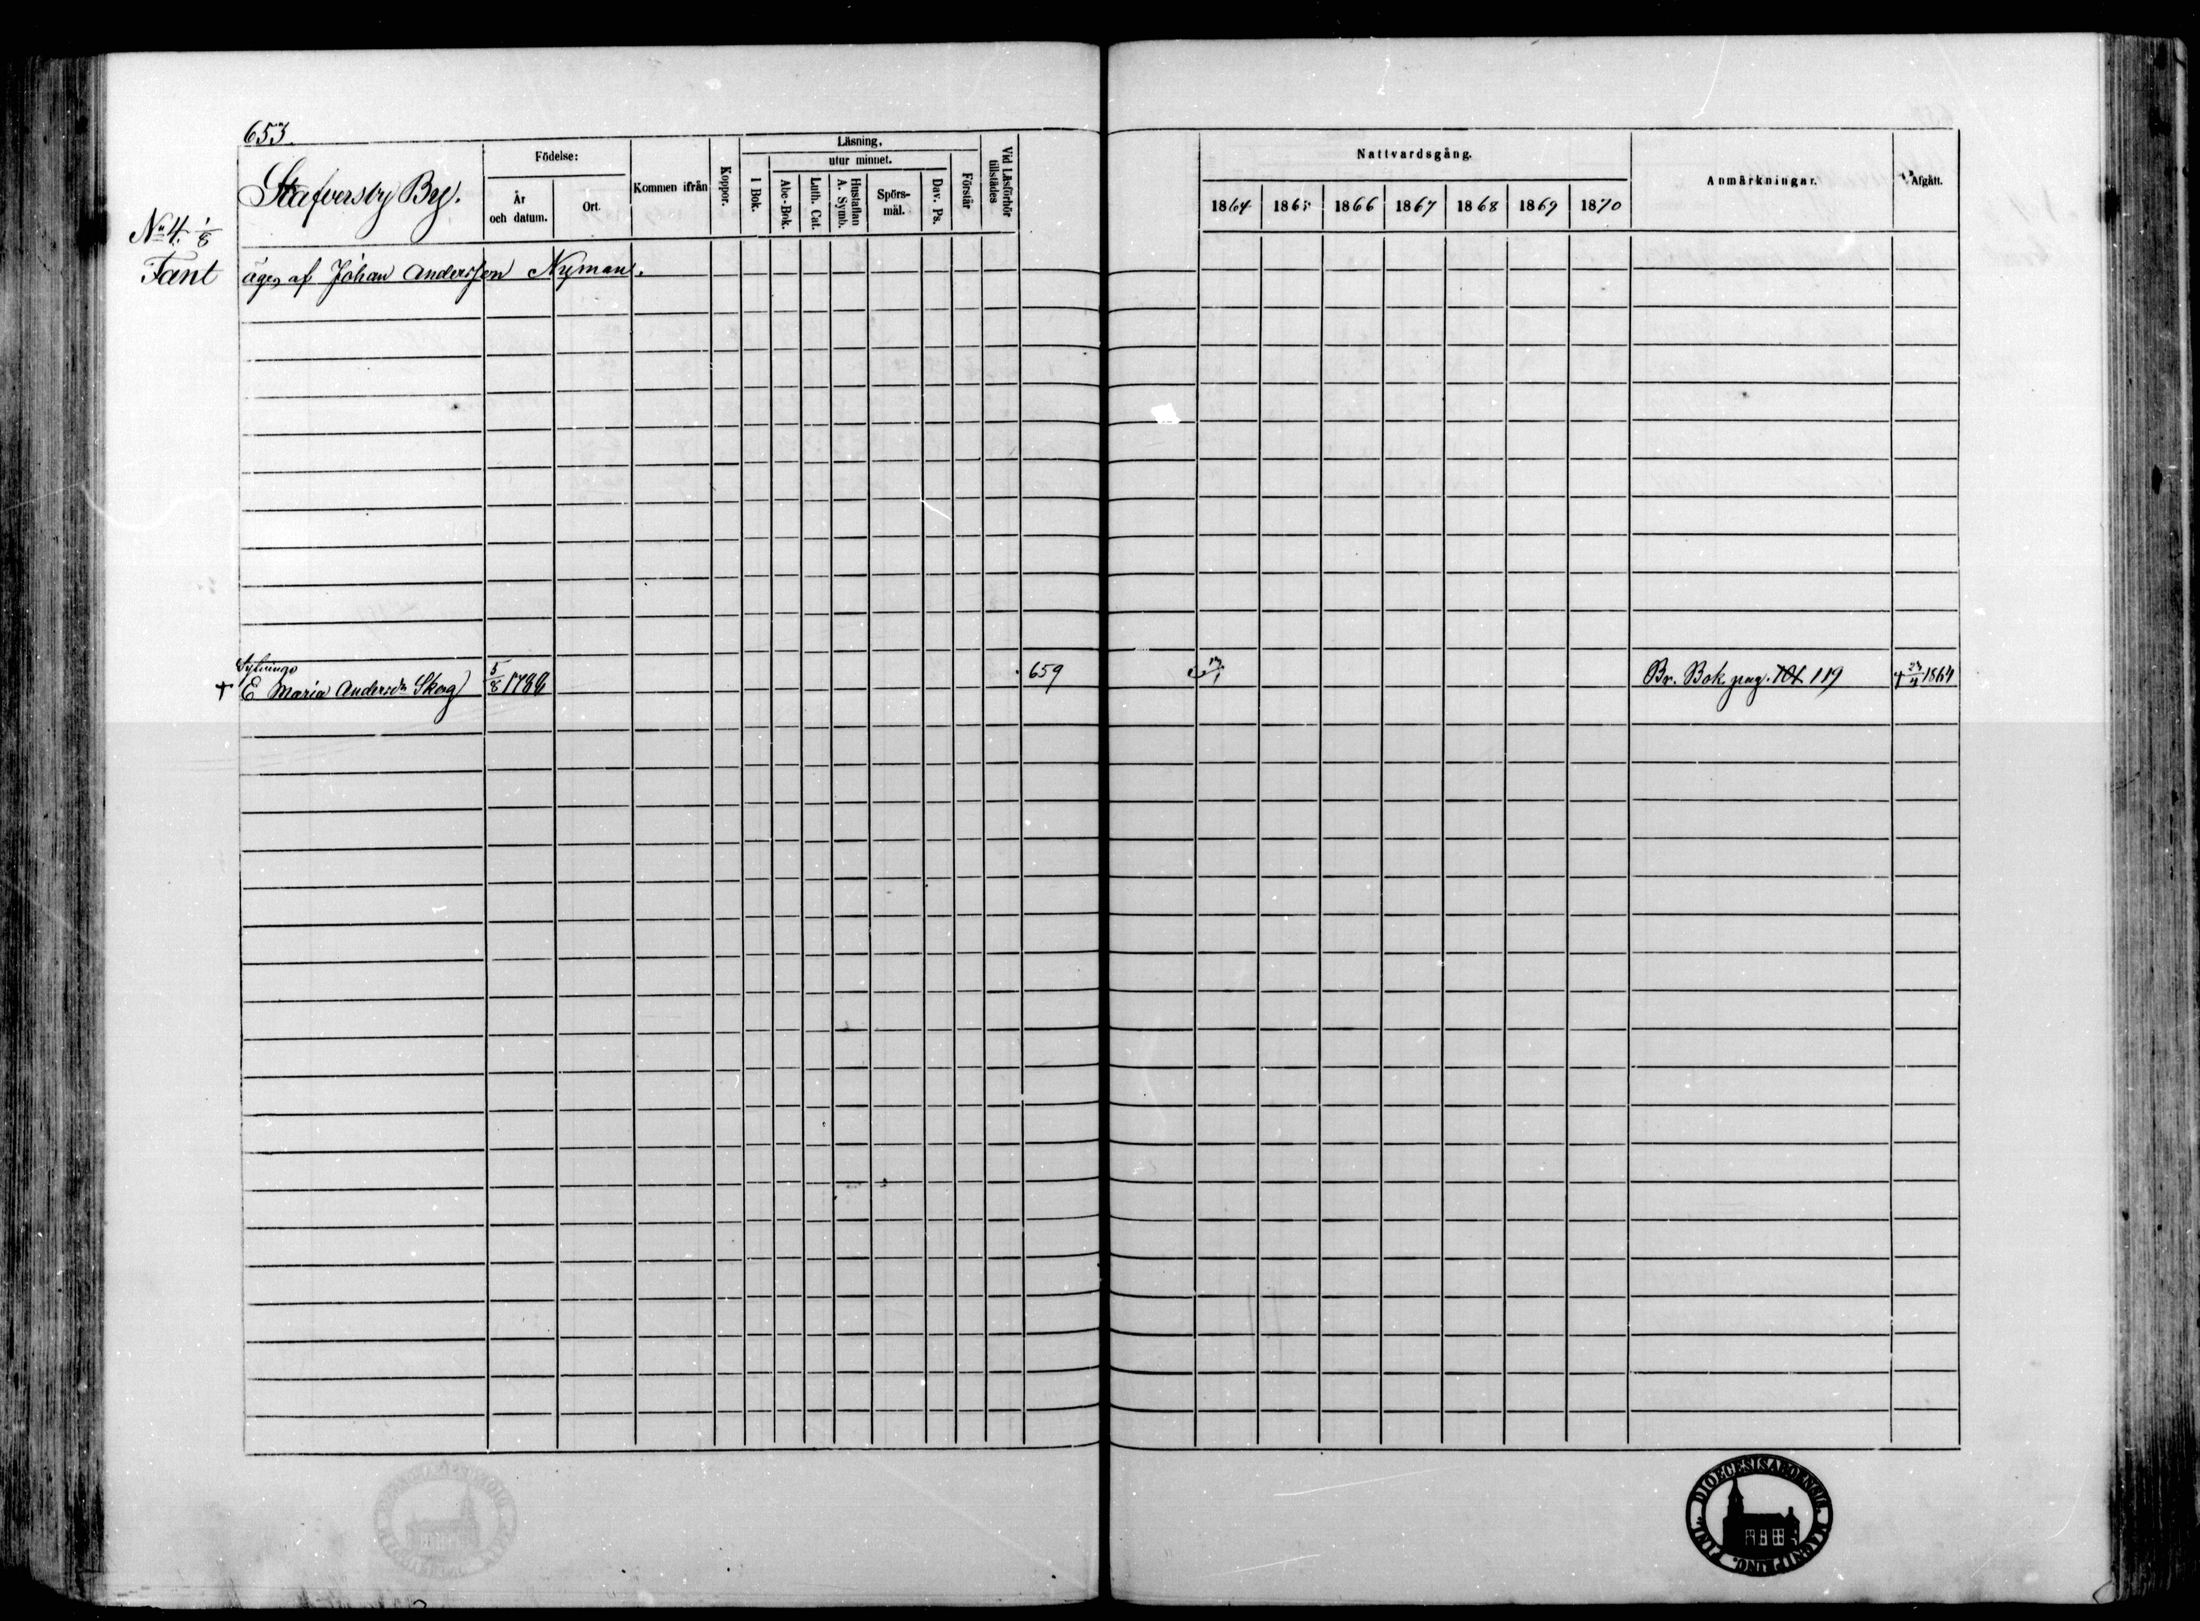 653.
Stafversby By.
Födelse:
År och datum.
Ort.
Kommen ifrån
Koppor.
Läsning,
utur minnet.
I Bok.
Abc-Bok.
Luth. Cat.
Hustaflan A. Symb.
Spörsmål.
Dav. Ps.
Förstår
Vid Läsförhör tillstädes
Nattvardsgång.
1864 1865 1866 1867 1868 1869 1870
Anmärkningar.
Afgått.
No 4. 1/8
Tant
äges af Johan Andersson Nyman.
† E Maria Andersdr Skog 5/8 1788 659 Br. Bok pag. 101 119 † 23/4 1864
DIOECESIS ABOENSIS